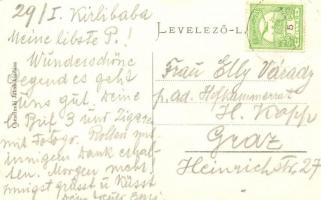 29/I. Kirlibaba
Meine liebste P.!
Wunderschöne
Gegend es geht
uns gut. Deine
Brief 3 und Zigarr.
mit Fotogr. Rollen mit
innigem Dank erhal-
ten. Morgen mehr!
innigst grüsst u Küsst
Dein
LEVELEZŐ-L
5
Frau Elly Várady
p. ad. Hofkammerrat
H. Kopp
Graz
Heinrichstr. 27